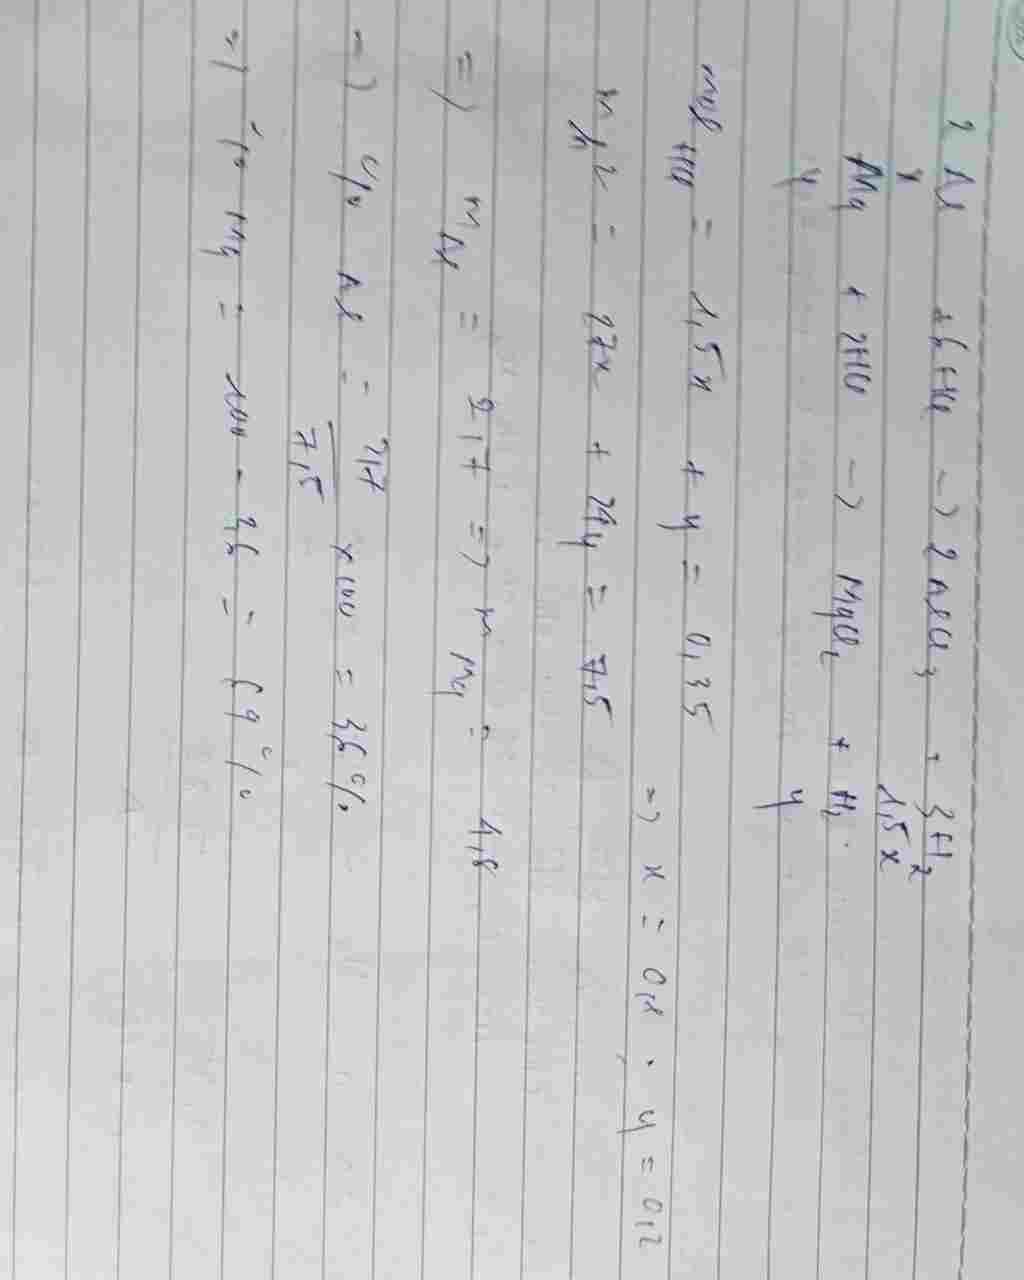 2 Al + 6 HCl -> 2 AlCl3 + 3H2
x 1,5x
Mg + 2HCl -> MgCl2 + H2.
y y
mol HCl = 1,5x + y = 0,35
m h2 = 27x + 24y = 7,5
=> x = 0,1 . y = 0,2
=> m Al = 2,7 => m Mg = 4,8
=> % Al = 2,7/7,5 x 100 = 36%
=> % Mg = 100 - 36 = 64%